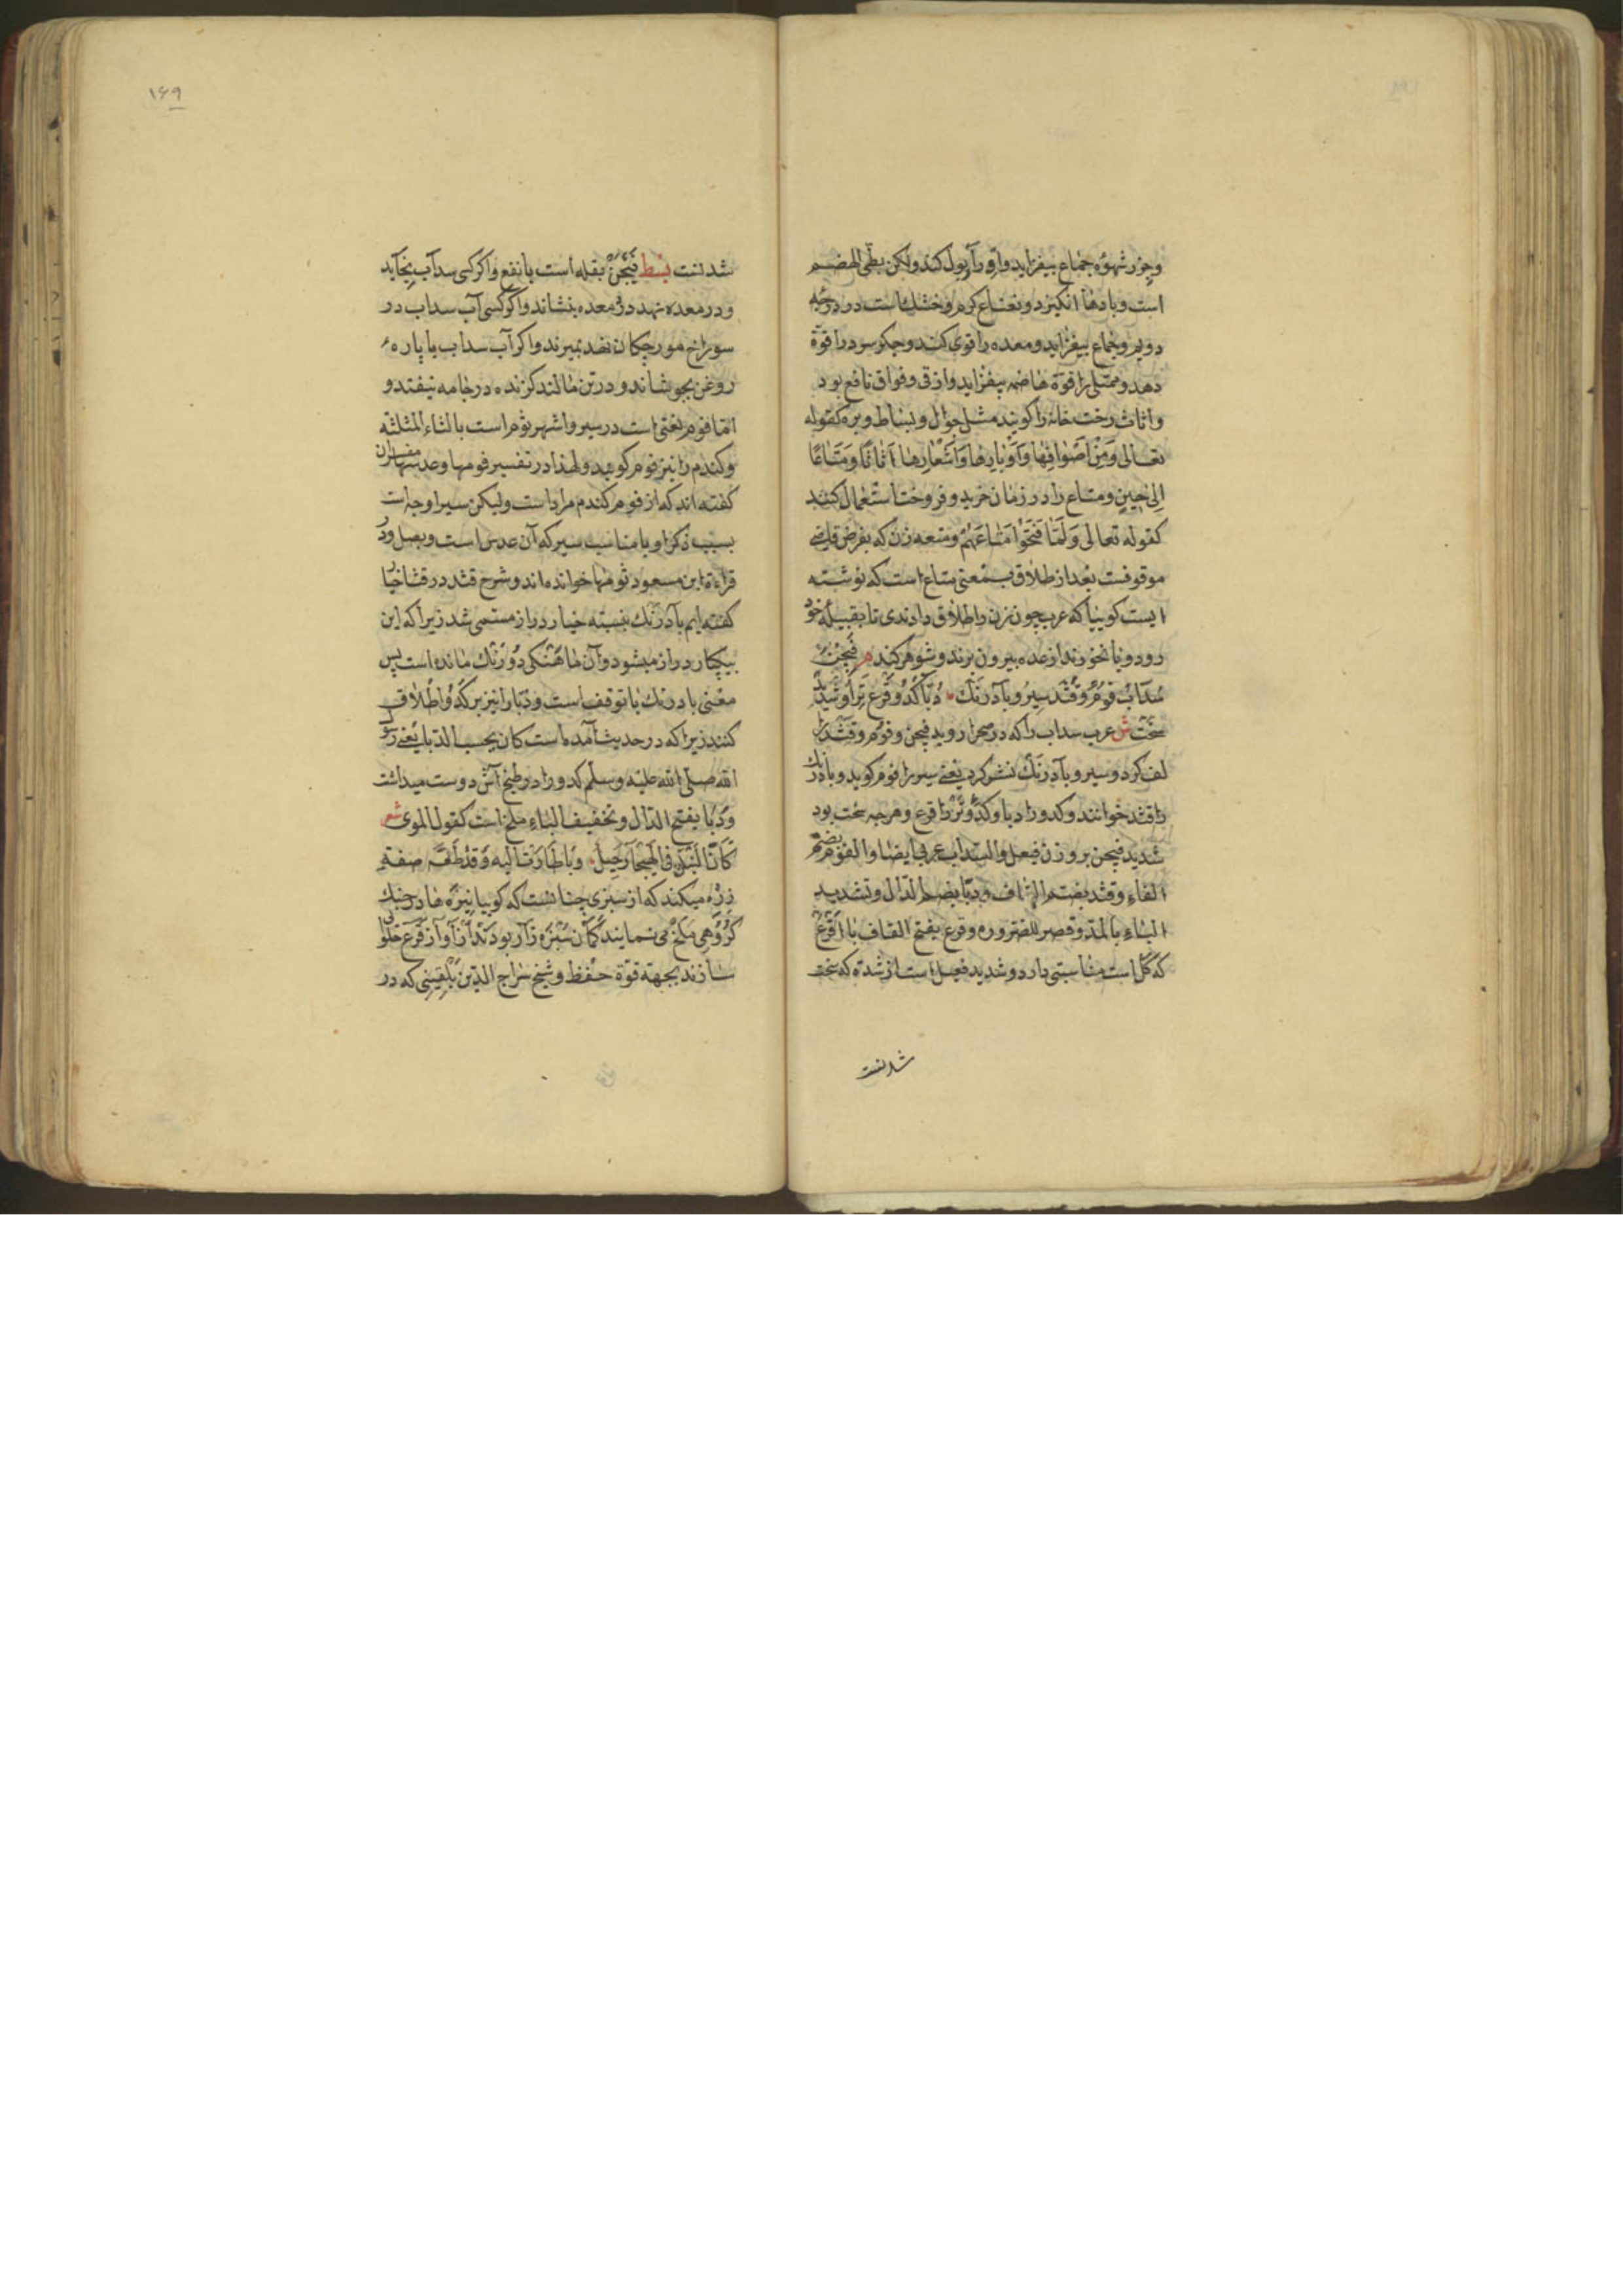 وجزر شهوه جماع بیفزاید وادرار بول کند ولکن بطی الهضم
است وبادها انکیزد ونعناع کرم وخشک است در درجه
دویم وجماع بیفزاید ومعده را قوی کند وجکر سرد را قوة
دهد وممتلی را قوة هاضمه بیفزاید واز قی وفواق نافع بود
واثاث رخت خانه را کویند مثل جوال وبساط وبره کقوله
تعالی وَمِنْ اَصْوَافِهَا وَاَوْبَارِهَا وَاَشْعَارِهَا اَثَاثًا وَمَتَاعًا
اِلیٰ حِینٍ ومتاع را در زمان خرید وفروخت استعمال کنند
کقوله تعالی وَلَمَّا فَتَحُوْا مَتَاعَهُمْ ومتعه زن که بفرض قاضی
موقوفست بعد از طلاق بمعنی متاع است که توشته
ایست کوییا که عرب چون زن را طلاق دادندی تا بقبیله خود
رود وبا نخورند از عده بیرون برند وشوهر کند م فَیْجَنْ
سُدَابْ فُوْمُ وقُثَد سِیرُ وبآدرَنْک دُبّا کَدُو قَرْع تَرْ اَو شَدِیْد
سَخْت ش عرب سداب را که در صحرا روید فیجن وفوم وقثد را
لف کرد وسیر وبآدرنک نشر کرد یعنی سیر را فوم کوید وبادرنک
را قثد خوانند وکدو را دبا وکدو تر را قرع وهرچه سخت بود
شدید فیجن بر وزن فیعل والسداب عربی ایضا والفوم بضم
الفاء وقثد بفتح القاف ودبّا بضم الدّال وتشدید
الباء بالمدّ وقصر للضرورة وقرع بفتح القاف با اَقْرَعْ
که کل است مناسبتی دارد وشدید فعیل است از شدة که سخت
شدنست
شدنست بسط فَیْجَنْ بقله است با نفع واکر کسی سداب بخآید
ودر معده نهد درد معده بنشاند واکر کسی آب سداب در
سوراخ مورچکان نهد بمیرند واکر آب سداب با پاره
روغن بجوشاند ودر تن مالند کزنده در جامه نیفتد و
امّا فوم لغتی است در سیر واشهر ثوم است بالثاء المثلثه
وکندم را نیز فوم کویند ولهذا در تفسیر فومها وعدسها مفسران
کفته اند که از فوم کندم مراد است ولیکن سیر اوجه است
بسبب ذکر او با مناسب سیر که آن عدس است وبصل ودر
قراءة ابن مسعود ثومها خوانده اند وشرح قثد در قثا خیار
کفته ایم بآدرنک بنسبته خیار دراز مسمّی شد زیرا که این
بیکبار دراز میشود وآن باهستکی دُورنک مانده است پس
معنی بادرنک با توقف است ودبّا را نیز بر کدو اطلاق
کنند زیرا که در حدیث آمده است کان یحب الدّبا یعنی رسول
الله صلی الله علیه وسلم کدو را در طبخ آش دوست میداشت
ودَبا بفتح الدّال وتخفیف الباء ملخ است کقول الموی شعر
زره میکند که از سبزی چنانست که کوییا نیزه ها در جنک
کروهی ملخ می نمایند کآن سبزه زار بودند از آو از قرع حلوا
سازند بجهة قوّة حفظ وشیخ سراج الدّین بُلْقِینِی که در
۱۶۹